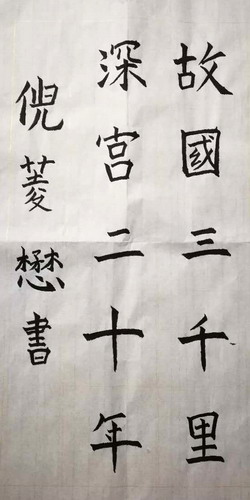 故國三千里
深宮二十年
倪菱懋書